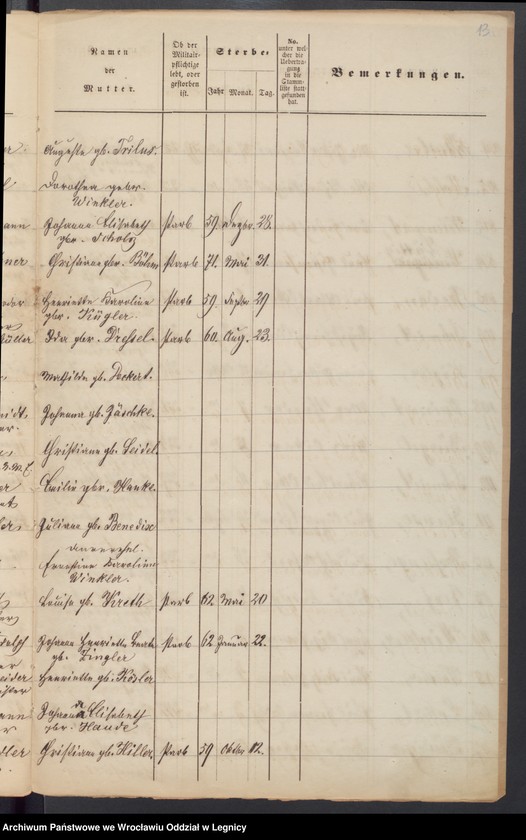 13.
Namen
der
Mutter.
Ob der
Militair-
pflichtige
lebt, oder
gestorben
ist.
Sterbe-
Jahr. Monat. Tag.
No.
unter wel-
cher die
Uebertra-
gung
in die
Stamm-
liste statt-
gefunden
hat.
Bemerkungen.
Auguste gb. Trilus.
Dorothea gebor.
Winkler.
Johanna Elisabeth starb 59. Dezbr. 28.
gbr. Scholz
Christiane gbr. Böhm starb 71. Mai 31.
Henriette Karoline starb 59. Septbr 29
gbr. Kügler.
Ida gbr. Dressel. starb 60. Aug. 23.
Mathilde gb. Deckert.
Johanna gb. Jäschke.
Christiane gb. Seidel.
Emilie gbr. Hanke.
Juliane gb. Benedix
Ernestine Karoline
Winkler.
Louise gb. Kroth starb 62. Mai 20
Johanne Henriette Beate starb 62. Januar 22.
gb. Zingler
Henriette gb. Kösler
Johanna Elisabeth
gbr. Haude
Christiane gb. Hiller. starb 59 Oktbr 12.
Archiwum Państwowe we Wrocławiu Oddział w Legnicy